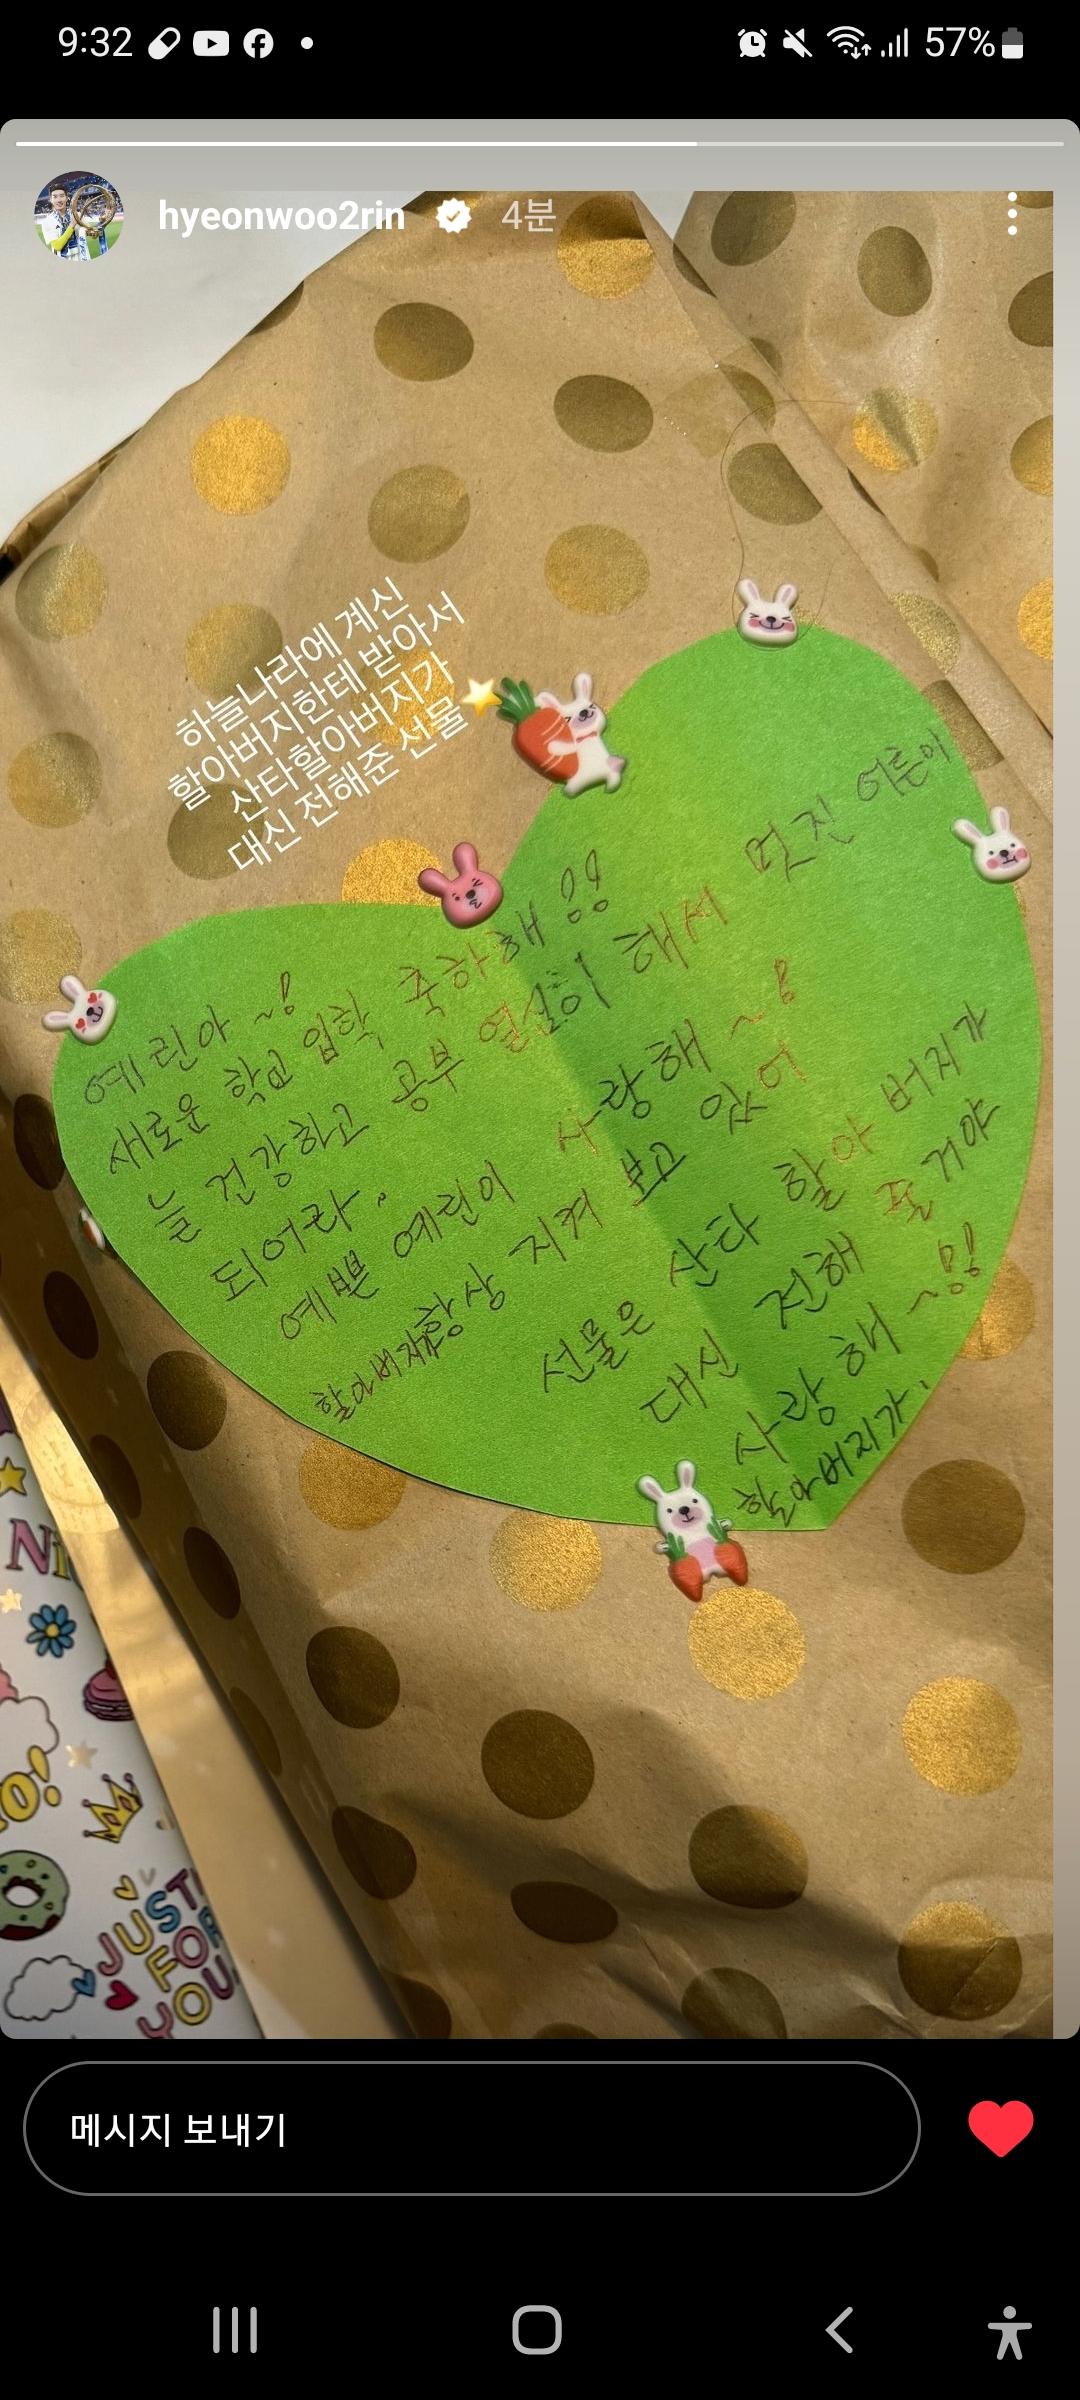 9:32
57%
hyeonwoo2rin 4분
하늘나라에 계신
할아버지한테 받아서
산타할아버지가
대신 전해준 선물
예린아 ~!
새로운 학교 입학 축하해 !!
늘 건강하고 공부 열심히 해서 멋진 어른이
되어라.
예쁜 예린이 사랑해 ~!
할아버지가 항상 지켜 보고 있어
선물은 산타 할아버지가
대신 전해 줄거야
사랑해 ~!!
할아버지가.
JUST
FOR
YOU
메시지 보내기